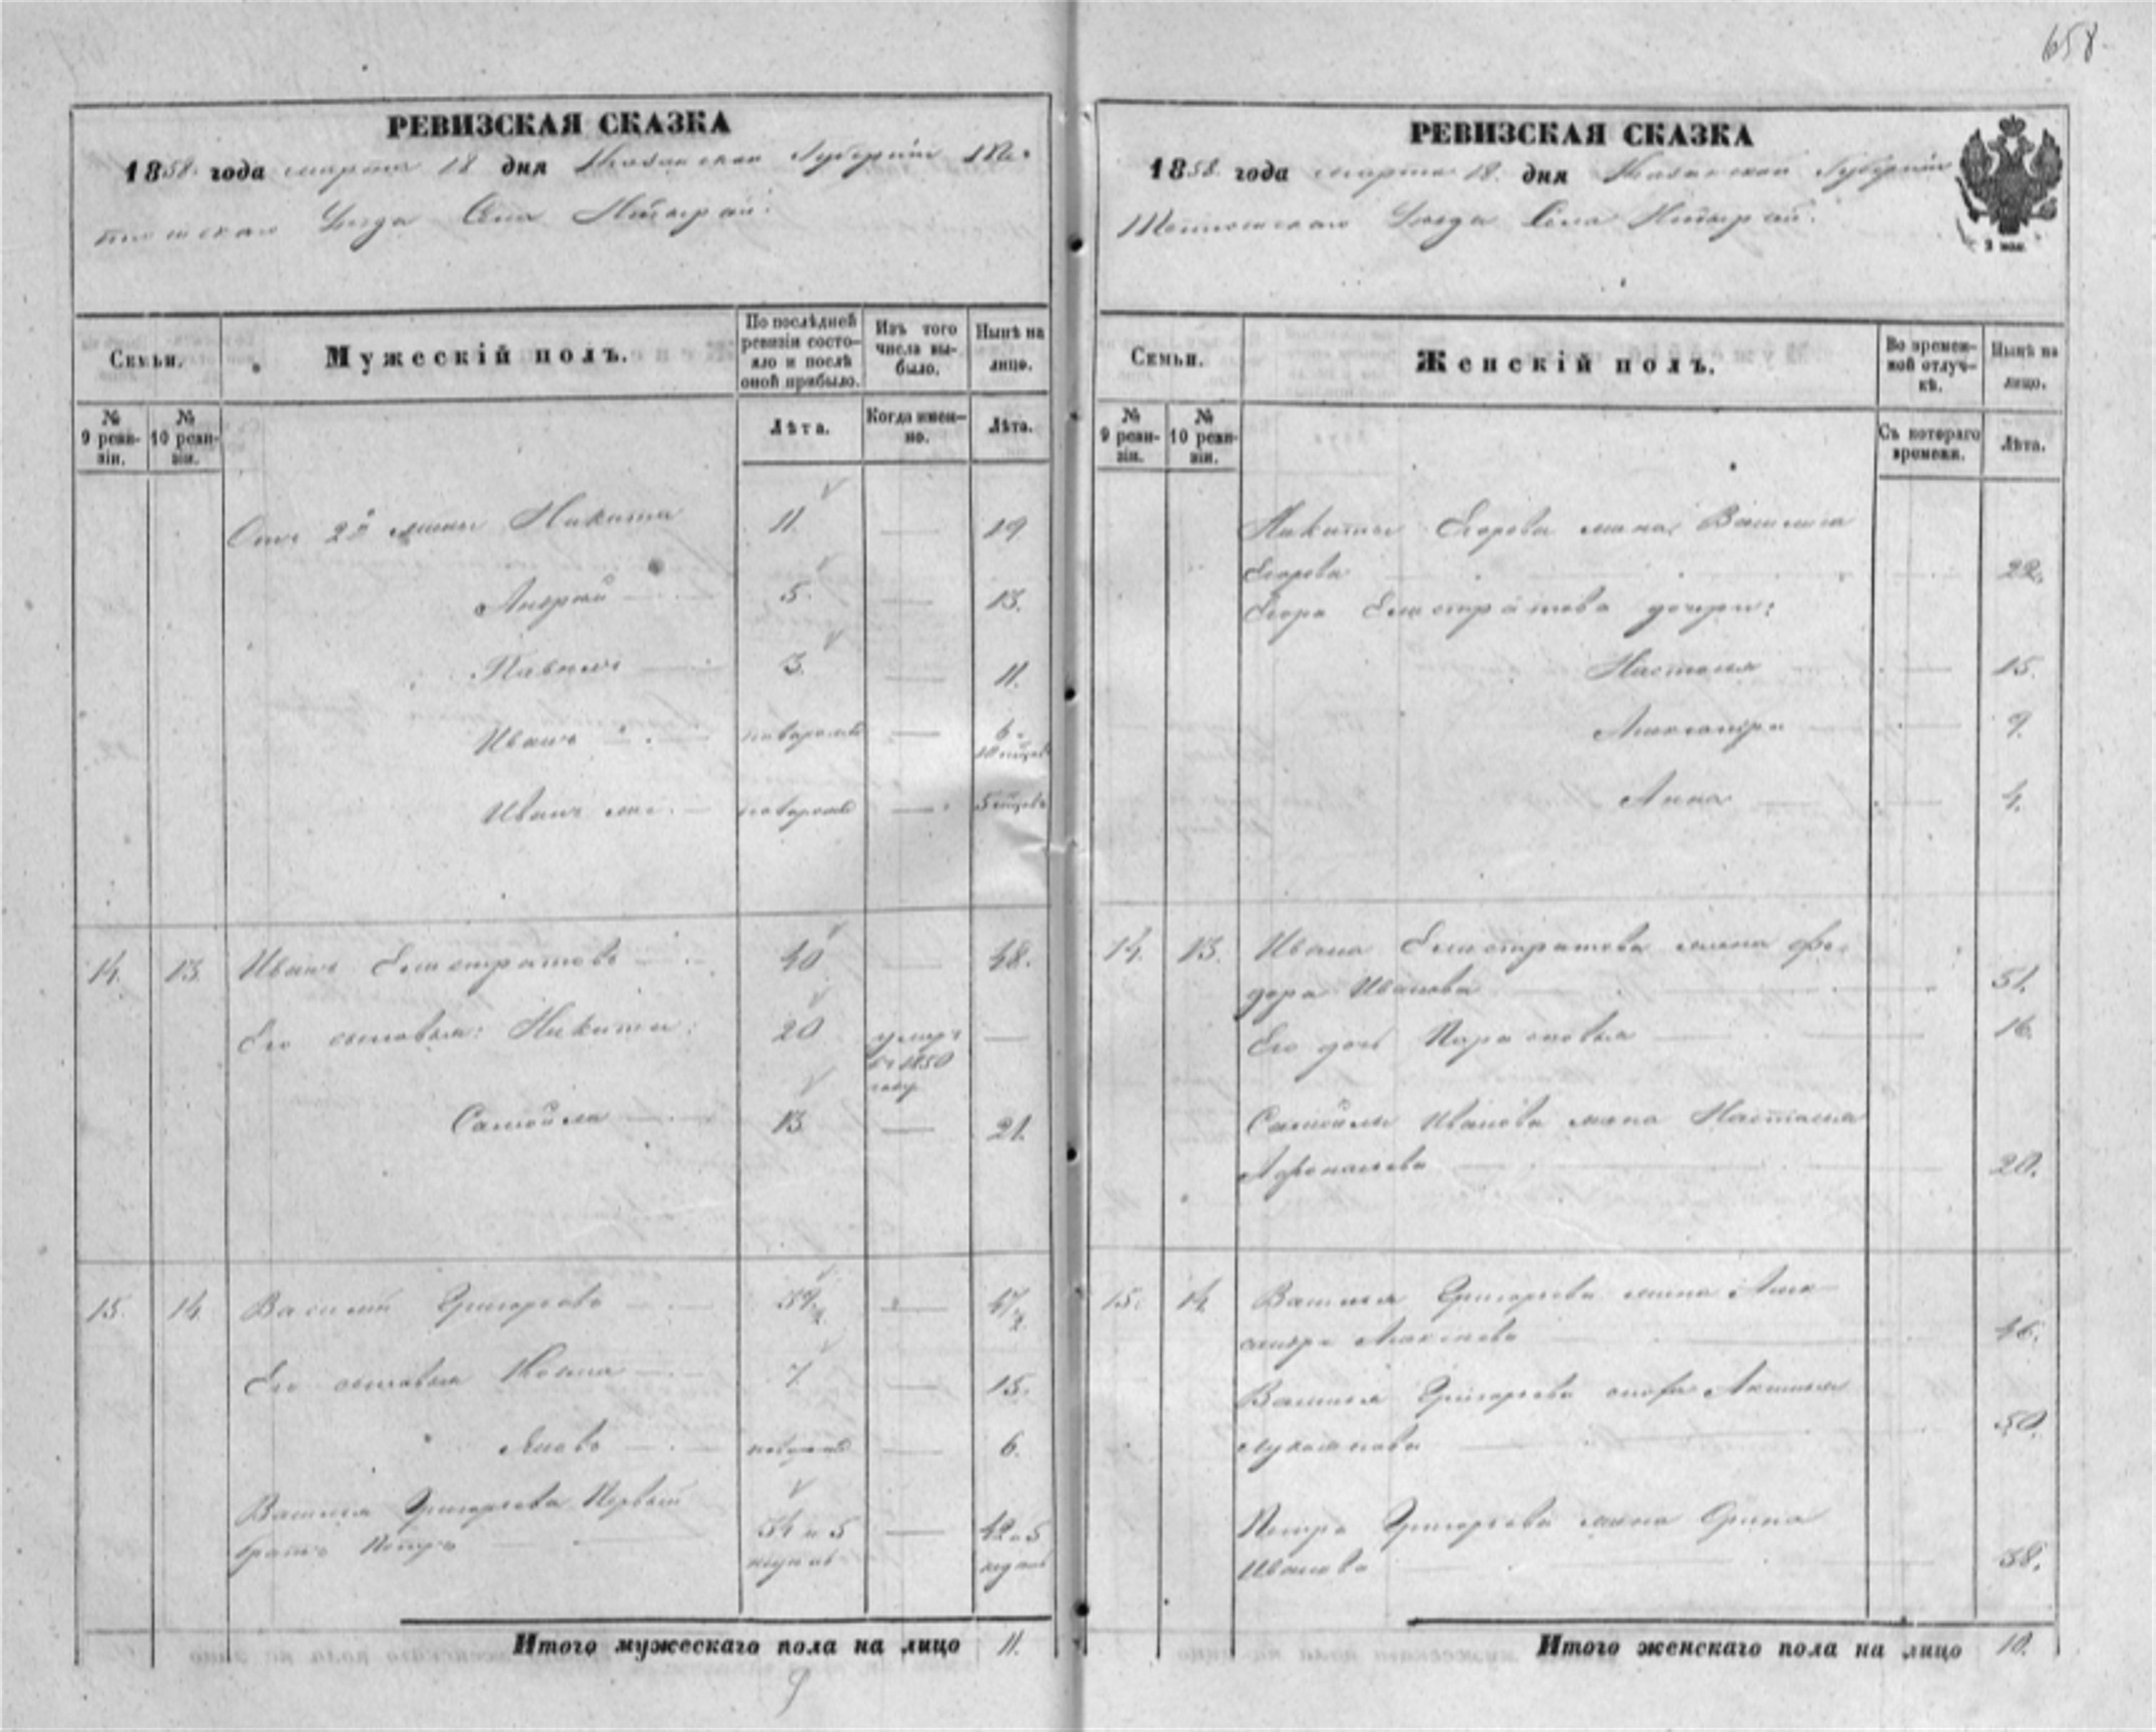 658.
РЕВИЗСКАЯ СКАЗКА
1858. года марта 18 дня Казанской Губернiи Те-
тюшскаго Уезда Села
Семьи.
Мужескій полъ.
По послѣдней ревизіи состо-
яло и послѣ оной прибыло.
Изъ того числа вы-
было.
Нынѣ на лицо.
№ 9 реви-
зіи.
№ 10 реви-
зіи.
Лѣта.
Когда имен-
но.
Лѣта.
Отъ 2й жены Никита 11. — 19
Андрей — 5. — 13.
Павелъ — 3. — 11.
Иванъ — новорожд — 6.
10 мцов
Иванъ — новорожд — 5 мцовъ
14. 13. Иванъ Елистратовъ — 40 — 48.
Его сыновья: Никита: 20 умеръ —
въ 1850
году
Самойла — 13. — 21.
15. 14. Василий Григорьевъ — 39½ — 47½
Его сыновья Козма — 7. — 15.
Яковъ — новорожд — 6.
Василья Григорьева Первый
братъ Петръ — 34 и 5 — 42 и 5
недель недель
Итого мужескаго пола на лицо 11.
РЕВИЗСКАЯ СКАЗКА
1858. года марта 18. дня Казанской Губернiи
Тетюшскаго Уезда Села
Семьи.
Женскій полъ.
Во времен-
ной отлуч-
кѣ.
Нынѣ на лицо.
№ 9 реви-
зіи.
№ 10 реви-
зіи.
Съ котораго времени.
Лѣта.
Никиты Егорова жена Василиса
Егорова — 22.
Егора Елистратова дочери:
Настасья — 15.
Александра — 9.
Анна — 4.
14. 13. Ивана Елистратова жена Фе-
дора Иванова — 51.
Его дочь Парасковья — 16.
Самойлы Иванова жена Настасья
Афонасьева — 20.
15. 14. Василья Григорьева жена Алек-
сандра — 46.
Василья Григорьева Акилина
Лукоянова — 50.
Петра Григорьева жена Орина
Иванова — 38.
Итого женскаго пола на лицо 10.